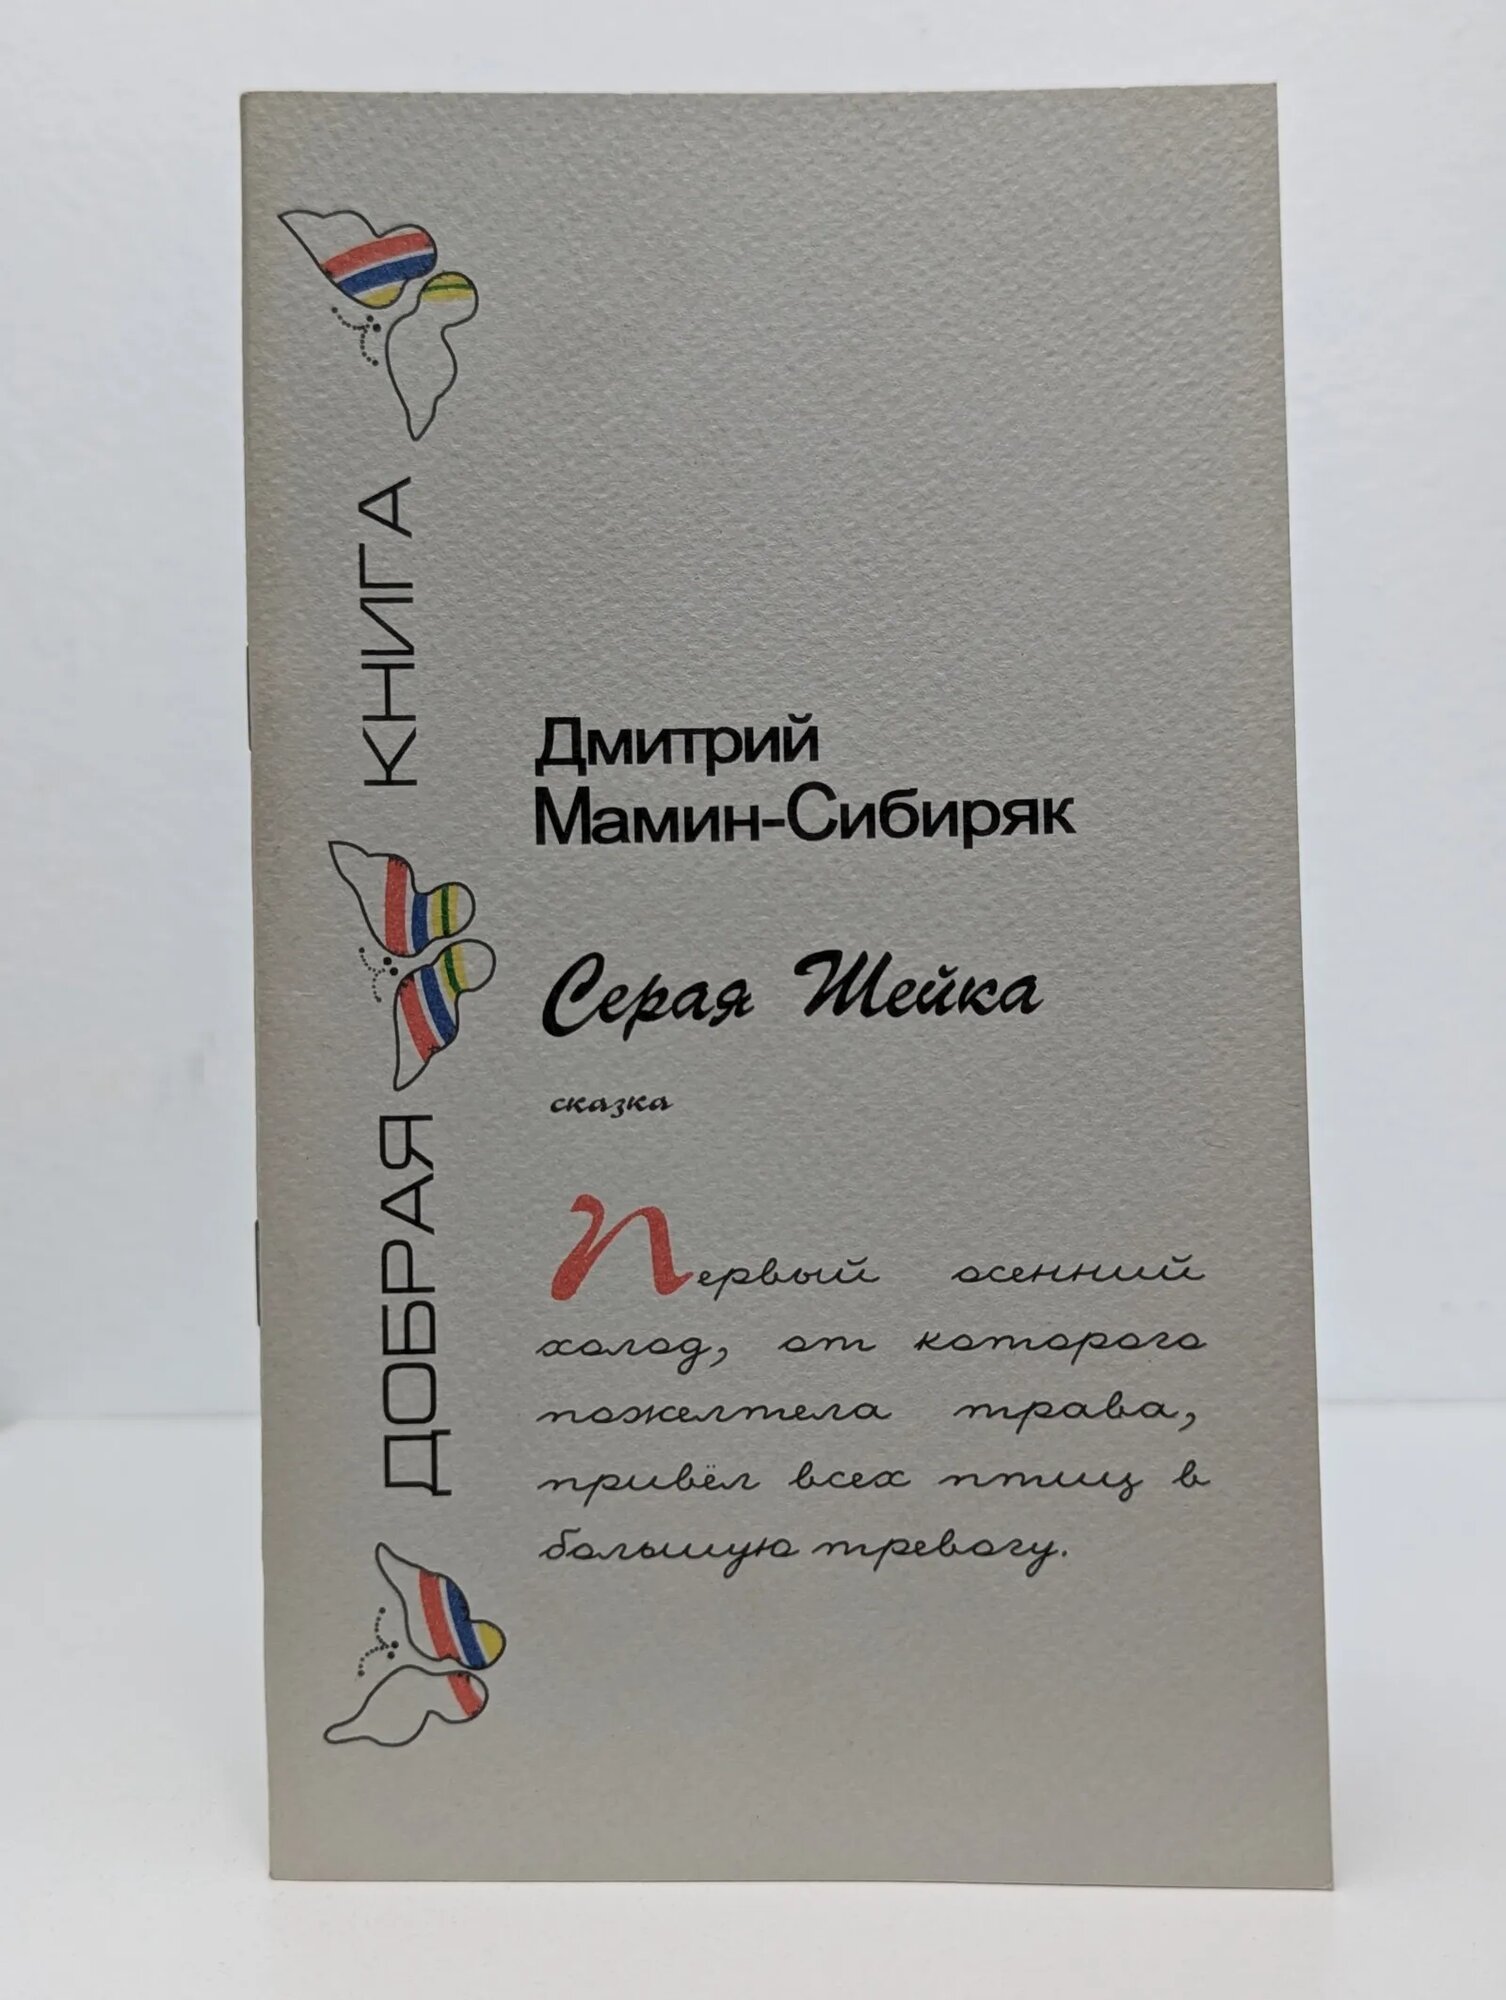 ДОБРАЯ КНИГА
Дмитрий
Мамин-Сибиряк
Серая Шейка
сказка
Первый осенний
холод, от которого
пожелтела трава,
привёл всех птиц в
большую тревогу.